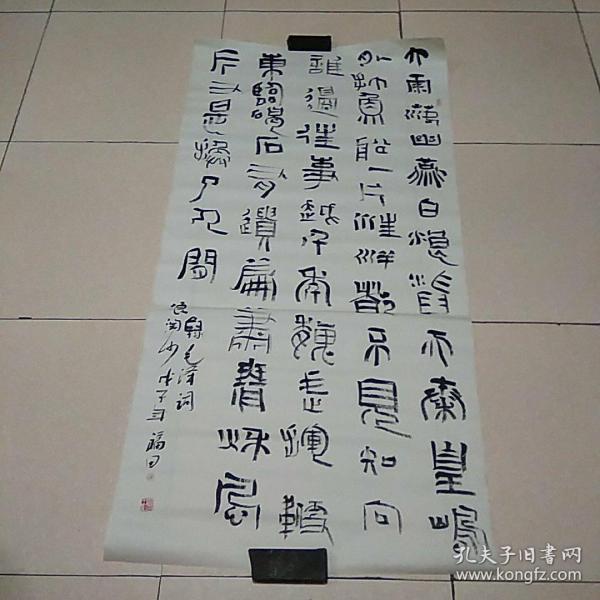 大雨落幽燕白浪滔天秦皇島
外打魚船一片汪洋都不見知向
誰邊往事越千年魏武揮鞭
東臨碣石有遺篇蕭瑟秋風
今又是換了人間
錄毛澤詞
浪淘沙戊子年
孔夫子旧书网
www.kongfz.com